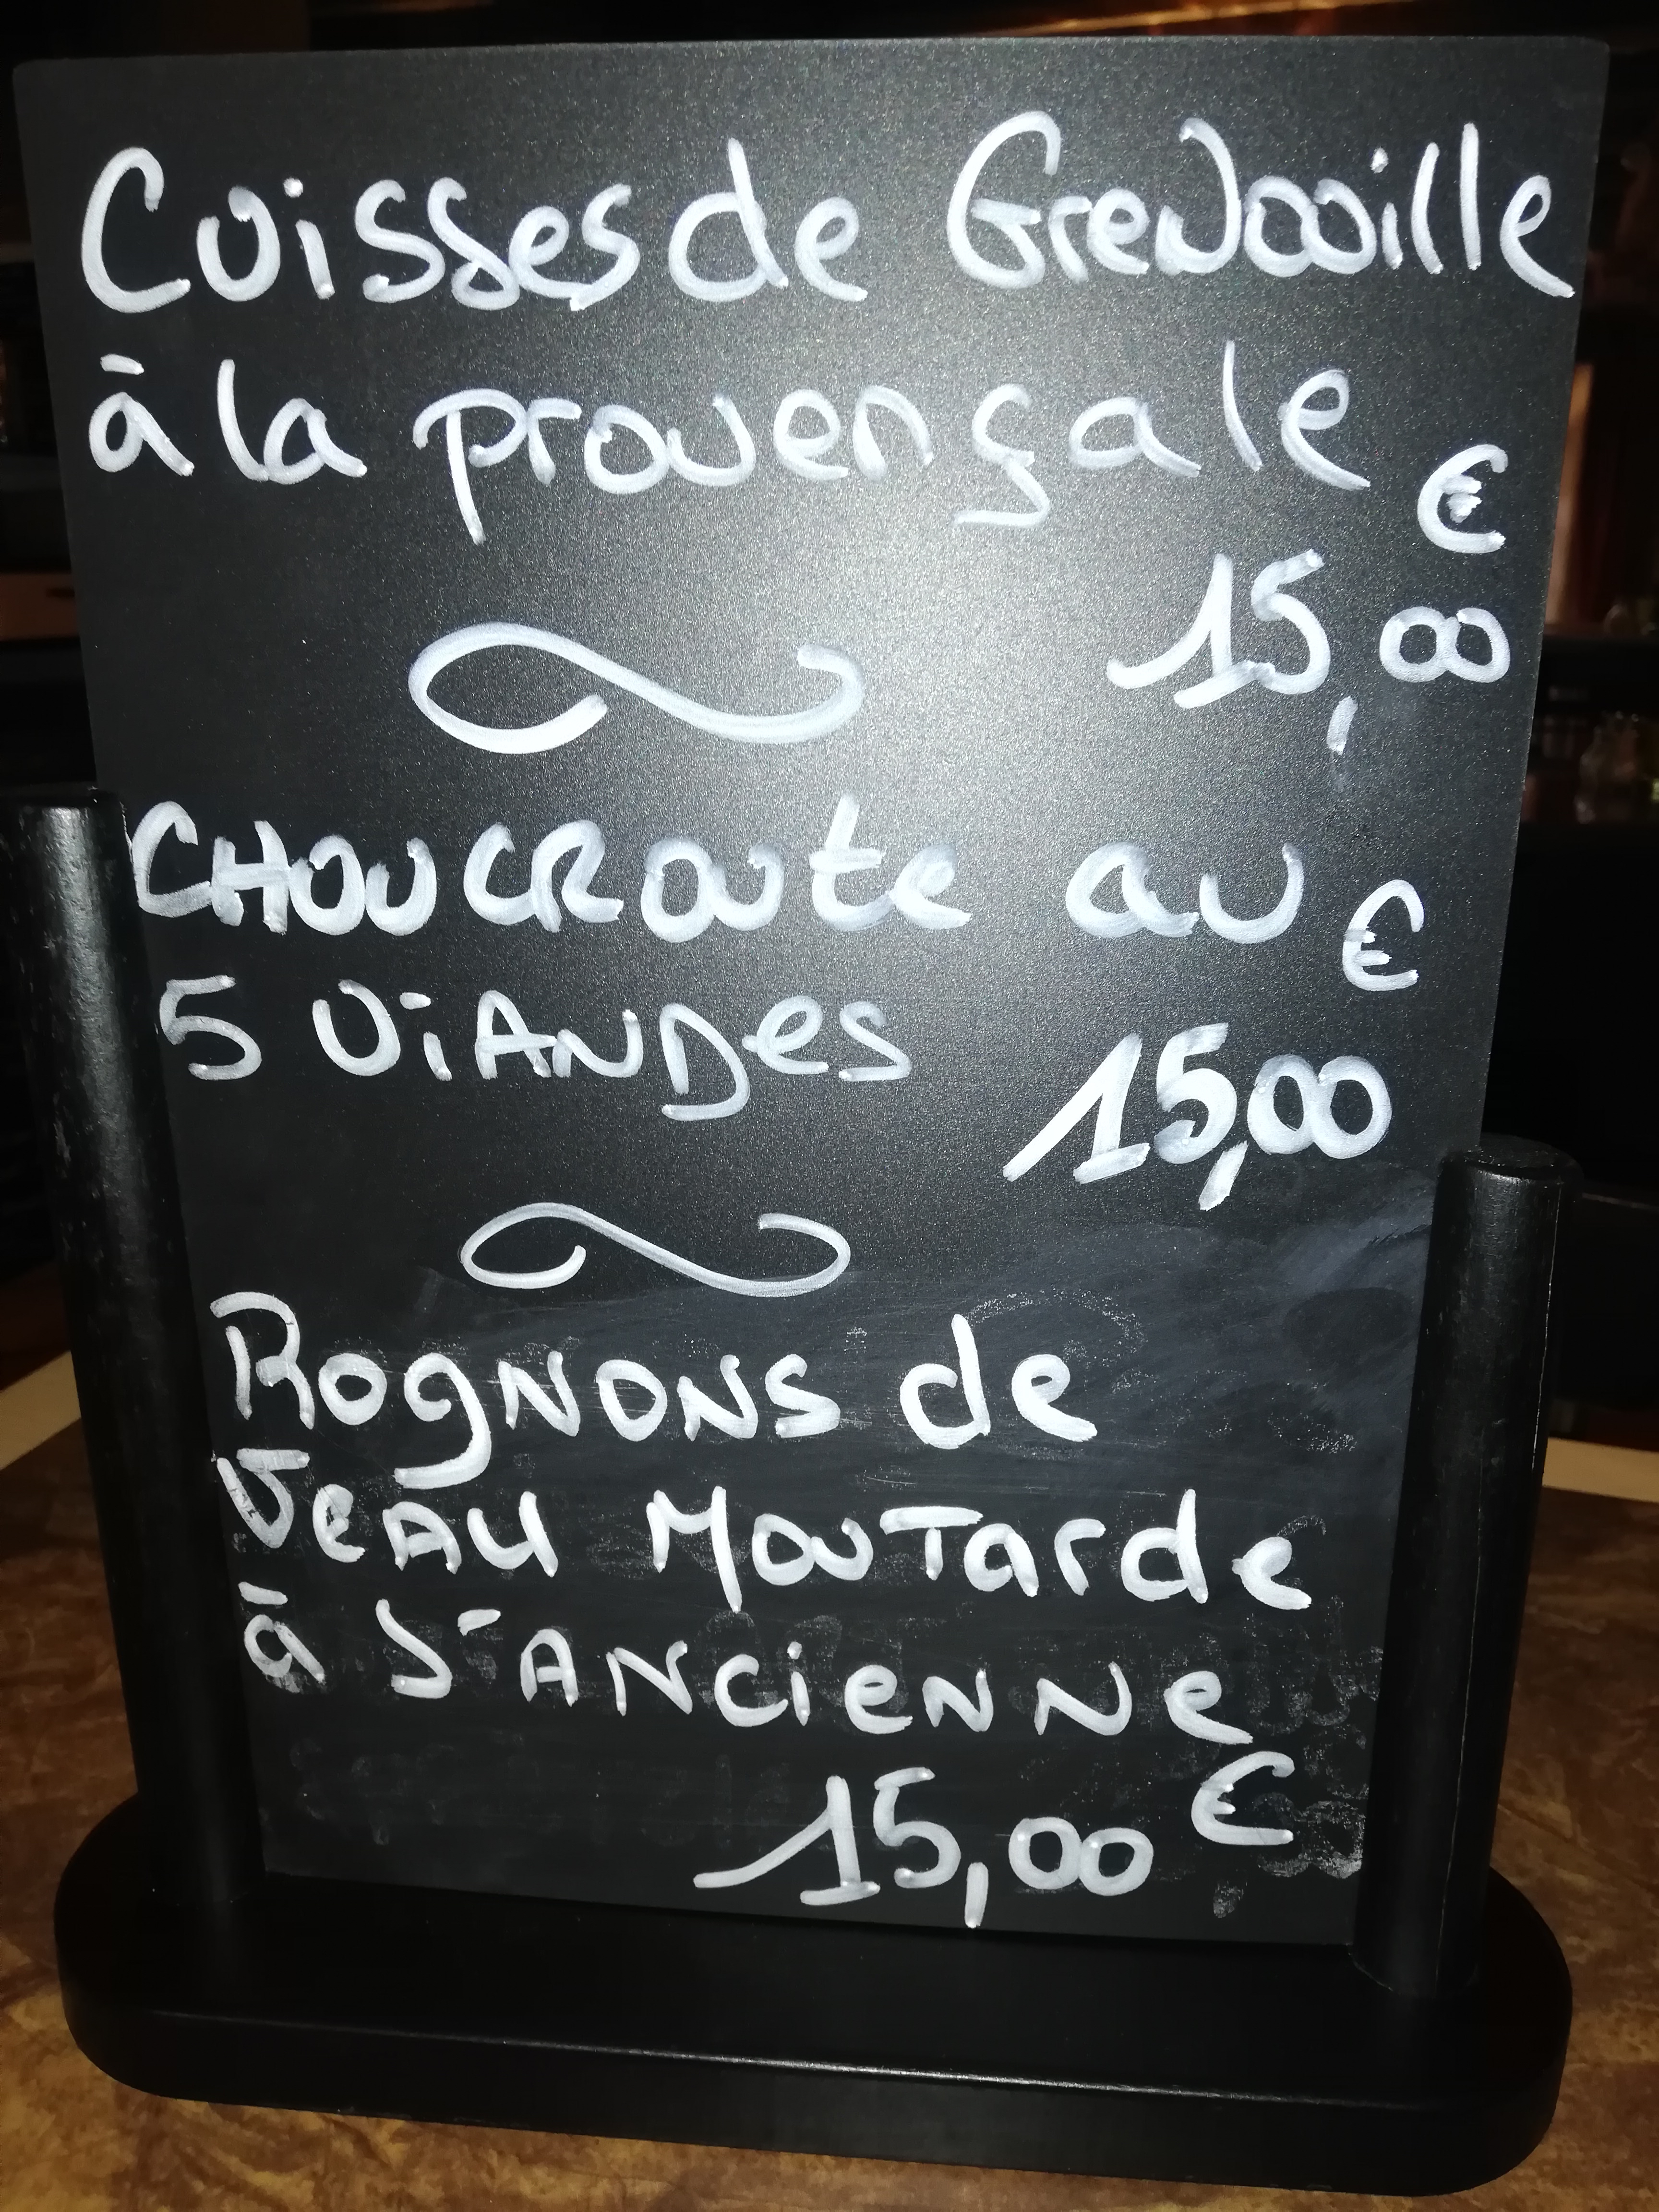 Cuisses de Grenouille
à la provençale
€
15,00
CHOUCROUTE au
€
5 ViANDes
15,00
Rognons de
Veau Moutarde
à l'Ancienne
15,00 €